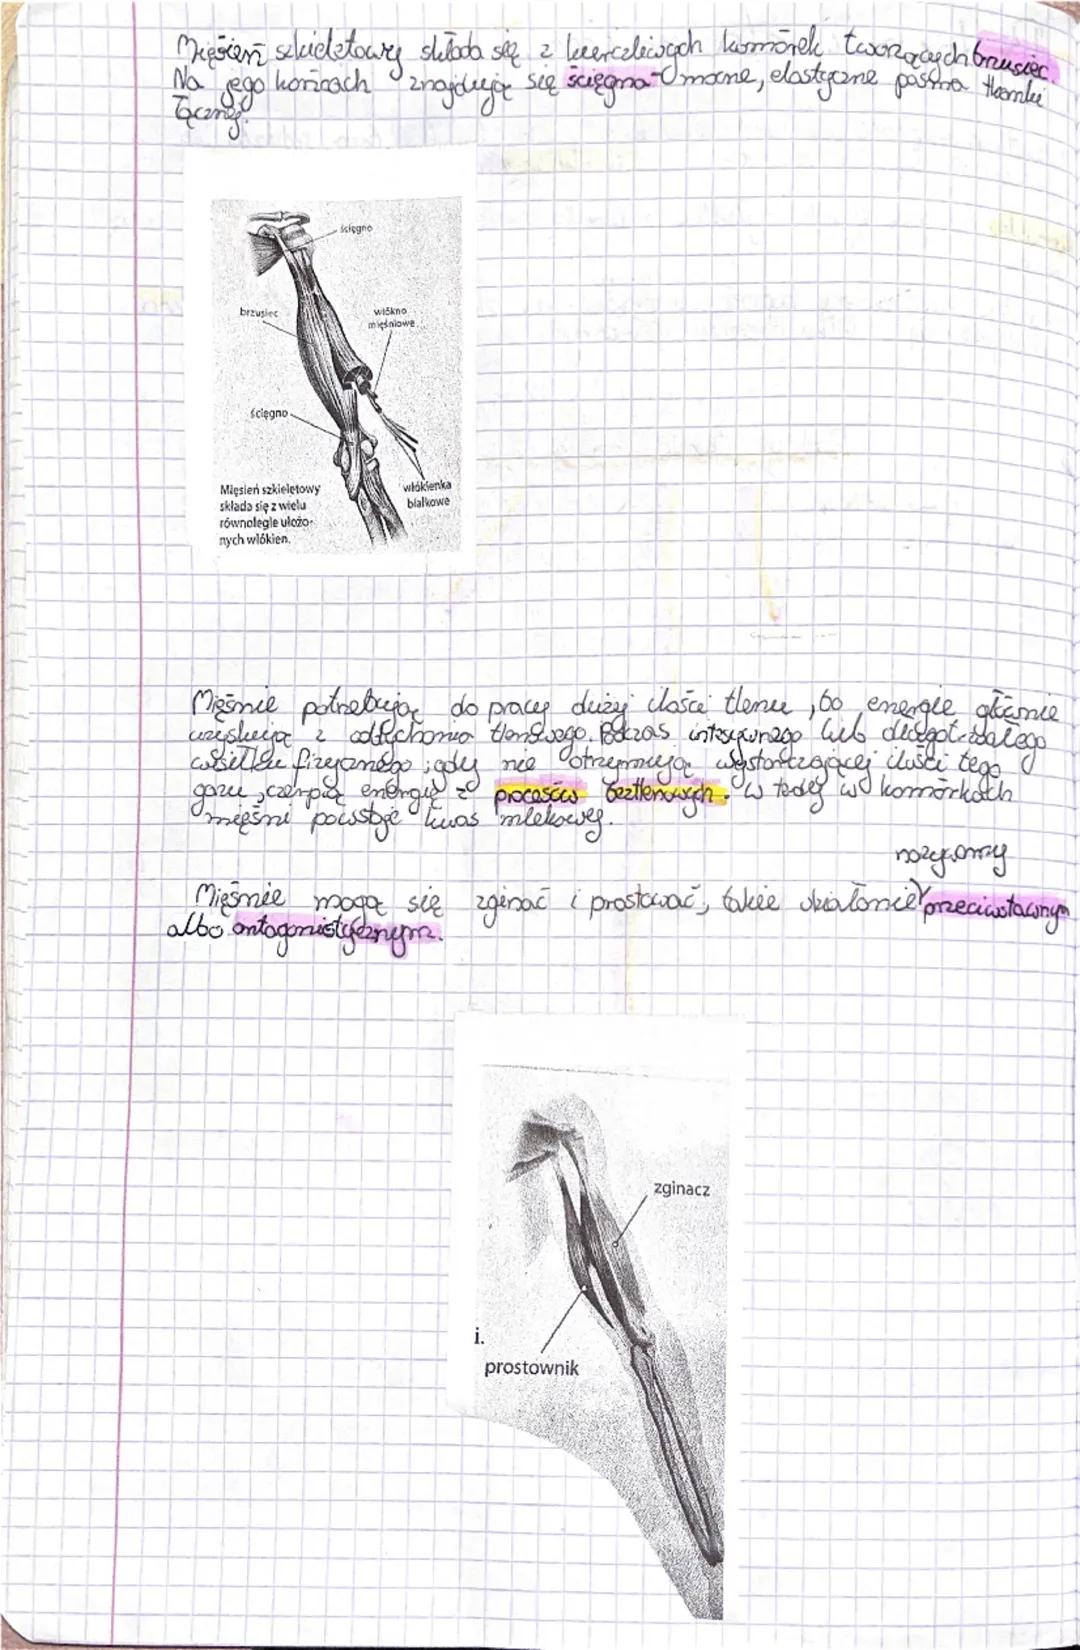 Mięsień szkieletowy składa się z kurczliwych komórek tworzących brzusiec.
Na jego końcach znajdują się ścięgna - mocne, elastyczne pasma tkanki
łącznej.
ścięgno
brzusiec
włókno
mięśniowe
ścięgno
Mięsień szkieletowy
składa się z wielu
równolegle ułożo-
nych włókien.
włókienka
białkowe
Mięśnie potrzebują do pracy dużej ilości tlenu, bo energię głównie
uzyskują z oddychania tlenowego. Podczas intesywnego lub długotrwałego
wysiłku fizycznego, gdy nie otrzymują wystarczającej ilości tego
gazu, czerpią energię z procesów beztlenowych. W tedy w komórkach
mięśni powstaje kwas mlekowy.
nazywamy
Mięśnie mogą się zginać i prostować, takie działanie przeciwstawnym
albo antagonistycznym.
zginacz
i.
prostownik